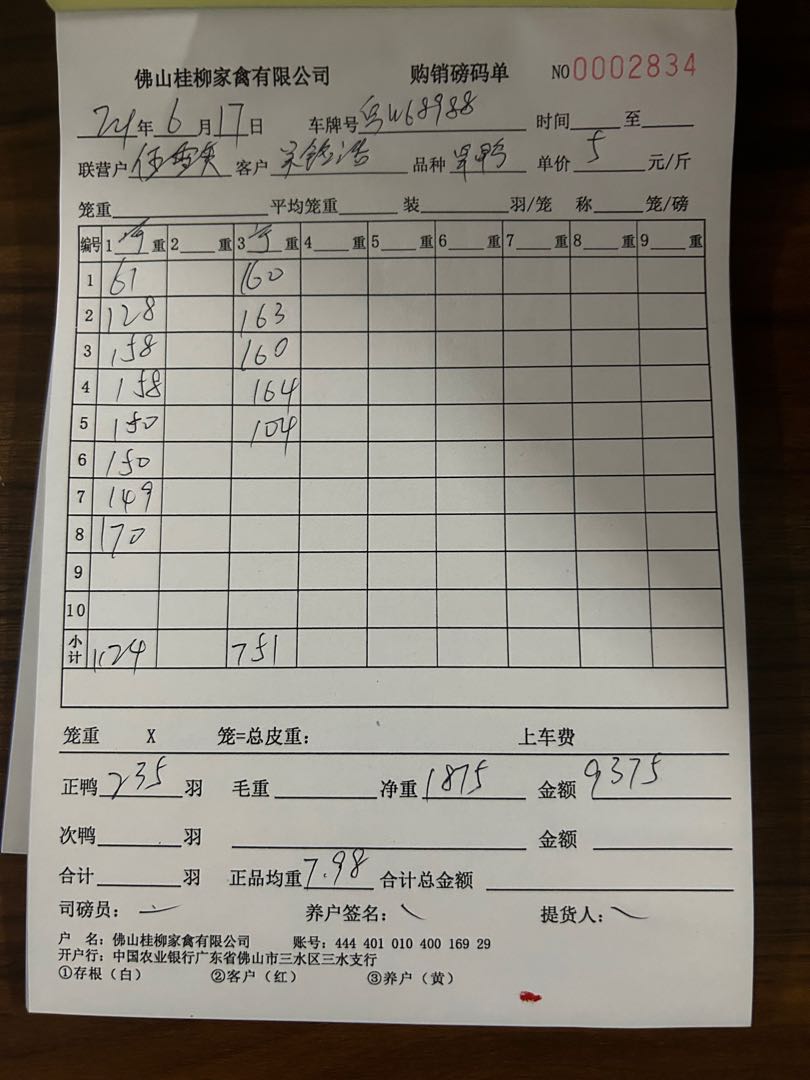 佛山桂柳家禽有限公司 购销磅码单 NO0002834
24年6月17日 车牌号粤W68988 时间 至
联营户 客户 品种 单价5元/斤
笼重 平均笼重 装 羽/笼 称 笼/磅
编号 1 重 2 重 3 重 4 重 5 重 6 重 7 重 8 重 9 重
1 61 160
2 128 163
3 158 160
4 158 164
5 150 104
6 150
7 149
8 170
9
10
小计 1124 751
笼重 X 笼=总皮重: 上车费
正鸭235羽 毛重 净重1875 金额9375
次鸭 羽 金额
合计 羽 正品均重7.98 合计总金额
司磅员: 养户签名: 提货人:
户 名: 佛山桂柳家禽有限公司 账号: 444 401 010 400 169 29
开户行: 中国农业银行广东省佛山市三水区三水支行
①存根(白) ②客户(红) ③养户(黄)